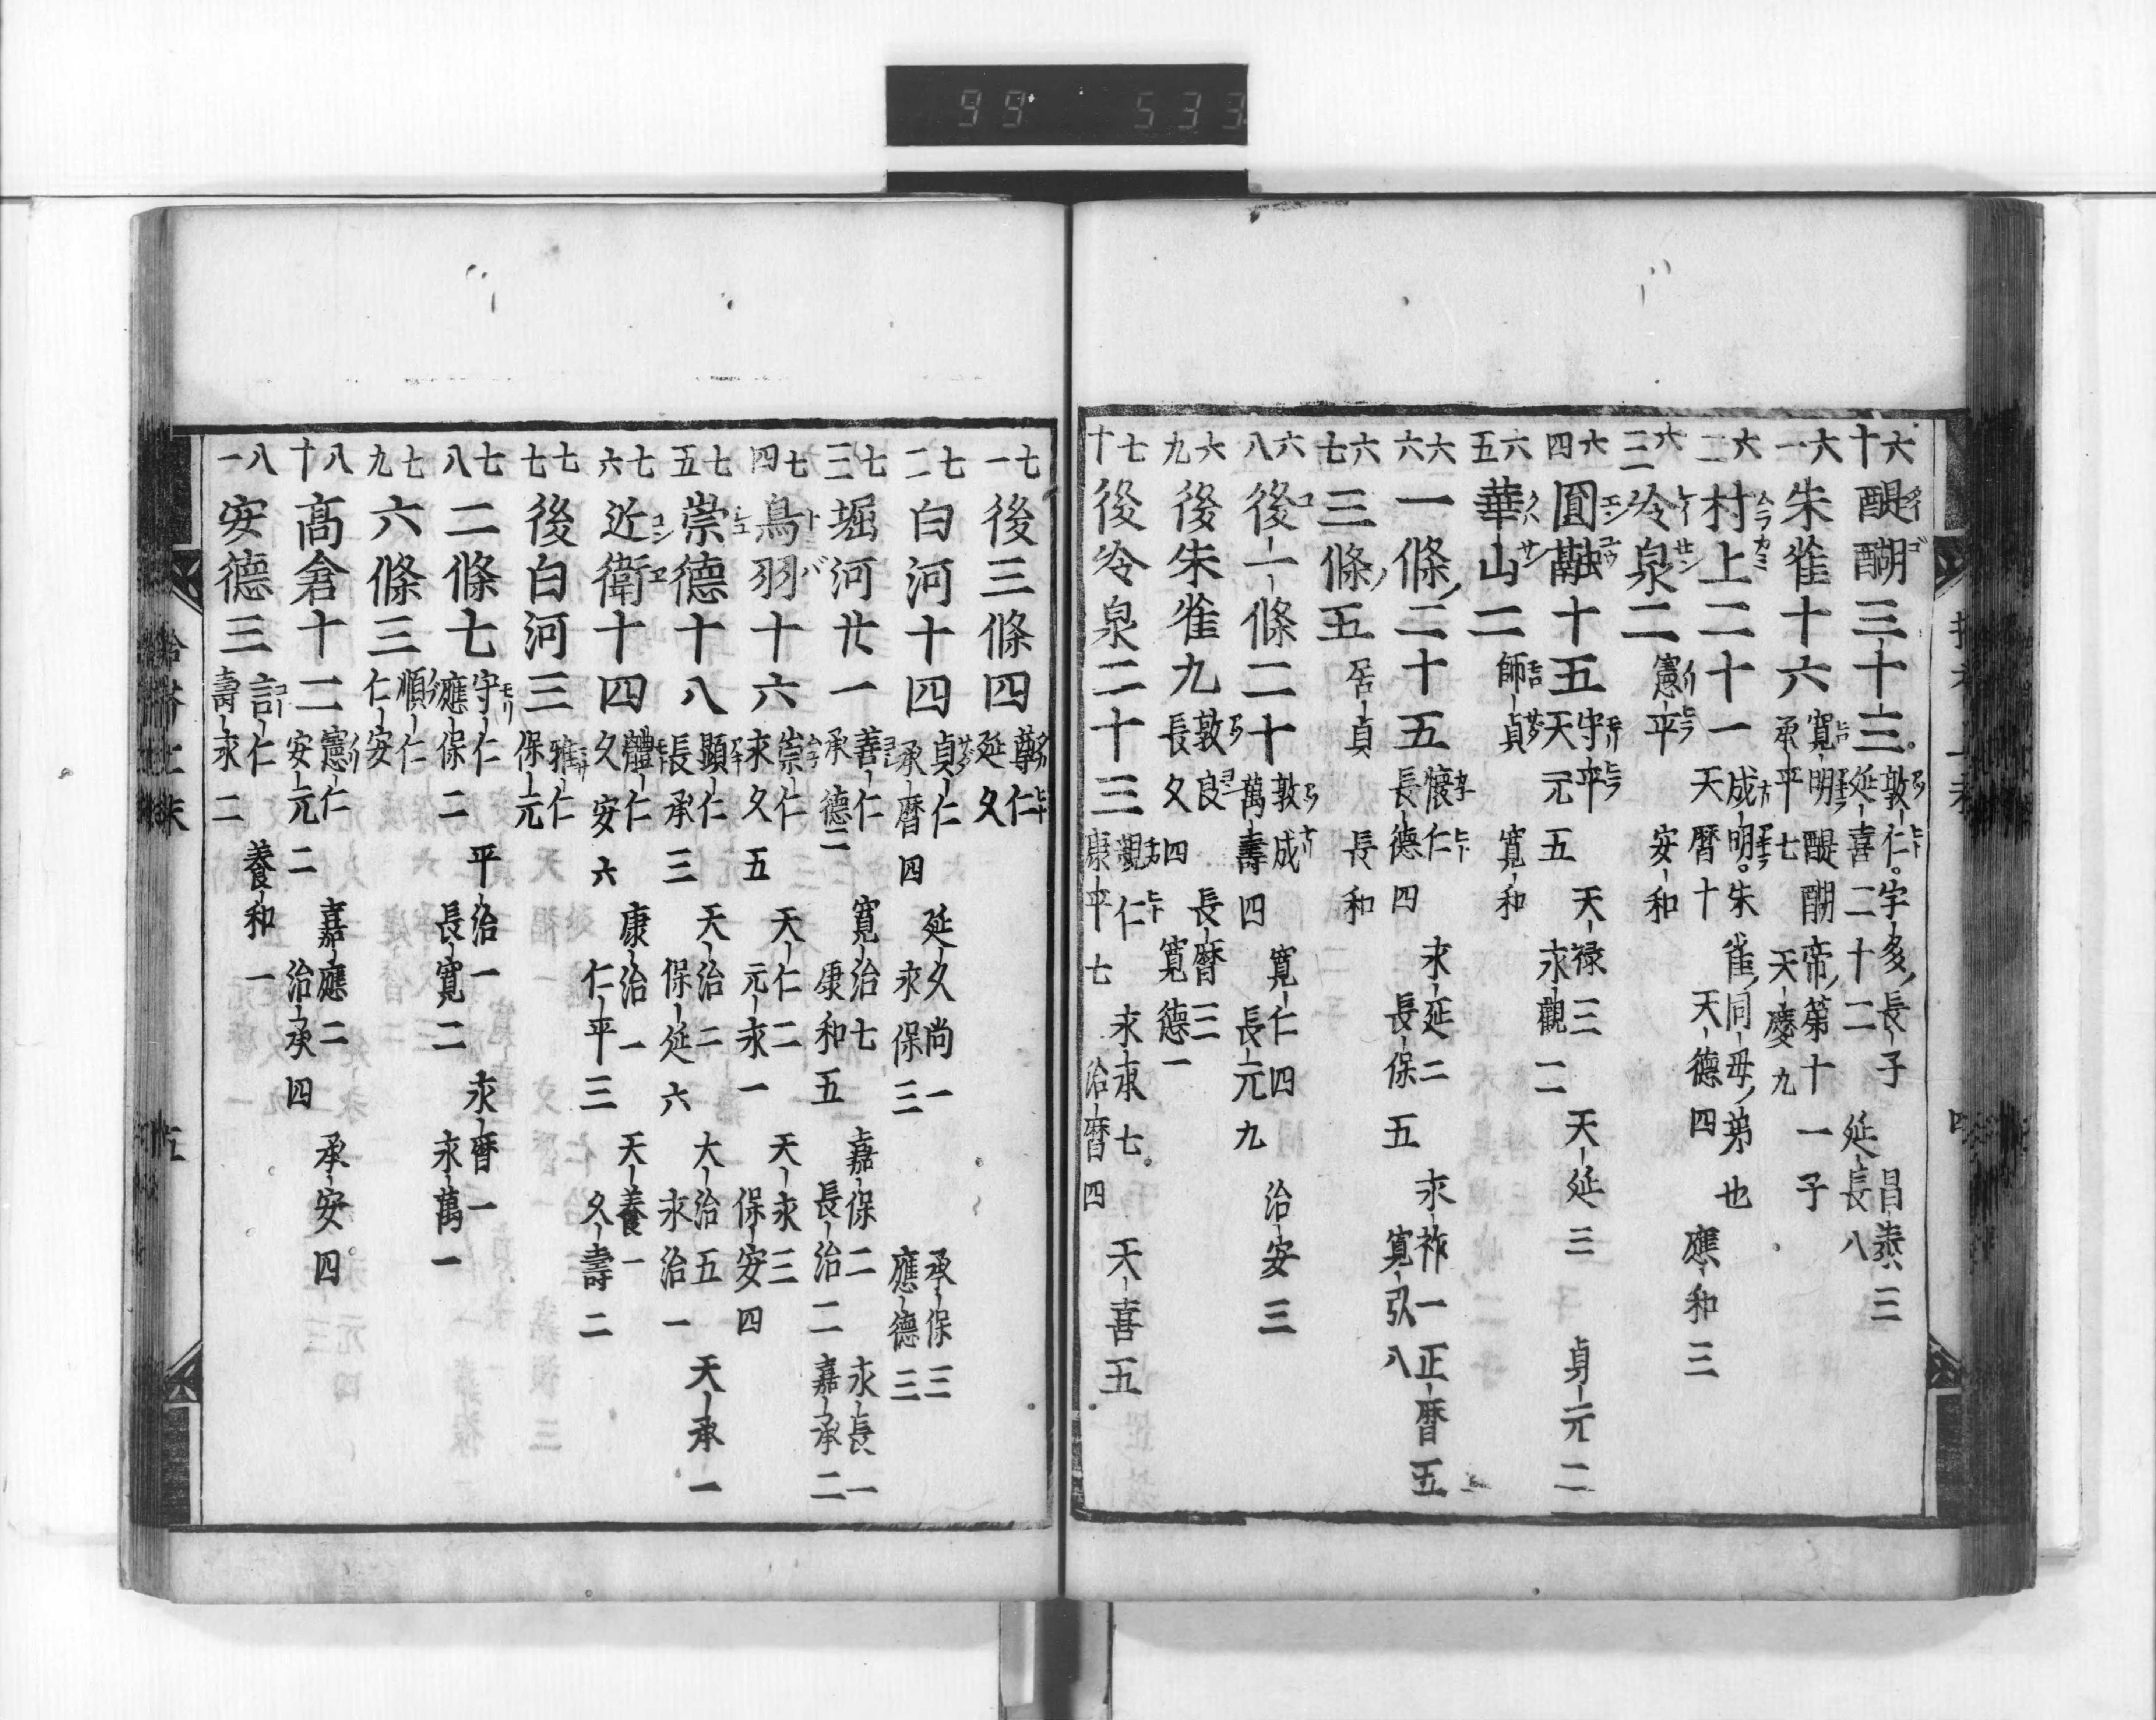 99 533
六十 醍醐三十三 敦仁。宇多長子 昌泰三
延喜二十二 延長八
六一 朱雀十六 寛明醍醐帝第十一子
承平七 天慶九
六二 村上二十一 成明。朱雀同母弟也
天暦十 天德四 應和三
六三 冷泉二 憲平 安和
六四 圓融十五 守平 天禄三 天延三 貞元二
天元五 永觀二
六五 華山二 師貞 寛和
六六 一條二十五 懷仁 永延二 永祚一 正暦五
長德四 長保五 寛弘八
六七 三條五 居貞 長和
六八 後一條二十 敦成 寛仁四 治安三
萬壽四 長元九
六九 後朱雀九 敦良 長暦三
長久四 寛德一
七十 後冷泉二十三 親仁 永承七 天喜五
康平七 治暦四
七一 後三條四 尊仁
延久
七二 白河十四 貞仁 延久尚一 承保三
承暦四 永保三 應德三
七三 堀河廿一 善仁 寛治七 嘉保二 永長一
承德二 康和五 長治二 嘉承二
七四 鳥羽十六 崇仁 天仁二 天永三
永久五 元永一 保安四
七五 崇德十八 顯仁 天治二 大治五 天承一
長承三 保延六 永治一
七六 近衛十四 體仁 康治一 天養一
久安六 仁平三 久壽二
七七 後白河三 雅仁
保元
七八 二條七 守仁 平治一 永暦一
應保二 長寛二 永萬一
七九 六條三 順仁
仁安
八十 髙倉十二 憲仁 嘉應二 承安四
安元二 治承四
八一 安德三 言仁 養和一
壽永二